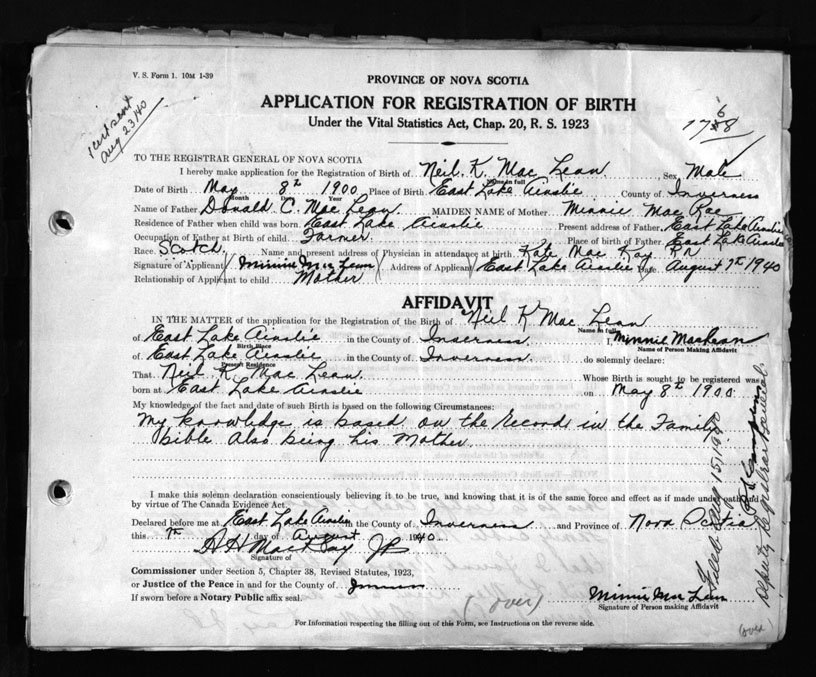 V. S. Form 1. 10M 1-39
PROVINCE OF NOVA SCOTIA
1 cert sent
Aug 23/40
APPLICATION FOR REGISTRATION OF BIRTH
Under the Vital Statistics Act, Chap. 20, R. S. 1923
6
1758
TO THE REGISTRAR GENERAL OF NOVA SCOTIA
I hereby make application for the Registration of Birth of Neil K. Mac Lean Sex Male
Name in full
Date of Birth May 8th 1900 Place of Birth East Lake Ainslie County of Inverness
Month Day Year
Name of Father Donald C. Mac Lean MAIDEN NAME of Mother Minnie Mac Rae
Residence of Father when child was born East Lake Ainslie Present address of Father East Lake Ainslie
Occupation of Father at Birth of child Farmer Place of birth of Father East Lake Ainslie
Race Scotch Name and present address of Physician in attendance at birth Kate Mac Kay
Signature of Applicant Minnie Mac Lean Address of Applicant East Lake Ainslie Date August 7th 1940
Relationship of Applicant to child Mother
AFFIDAVIT
IN THE MATTER of the application for the Registration of the Birth of Neil K Mac Lean
Name in full
of East Lake Ainslie in the County of Inverness I, Minnie MacLean
Birth Place Name of Person Making Affidavit
of East Lake Ainslie in the County of Inverness do solemnly declare:
Present Residence
That Neil K. Mac Lean Whose Birth is sought to be registered was
born at East Lake Ainslie on May 8th 1900
My knowledge of the fact and date of such Birth is based on the following Circumstances:
My knowledge is based on the Record in the Family
Bible Also being his Mother
I make this solemn declaration conscientiously believing it to be true, and knowing that it is of the same force and effect as if made under oath and
by virtue of The Canada Evidence Act.
Declared before me at East Lake Ainslie in the County of Inverness and Province of Nova Scotia
this 7th day of August 1940
H H MacKay JP
Signature of
Commissioner under Section 5, Chapter 38, Revised Statutes, 1923,
or Justice of the Peace in and for the County of Inverness
If sworn before a Notary Public affix seal.
(over)
Minnie Mac Lean
Signature of Person making Affidavit
For Information respecting the filling out of this Form, see Instructions on the reverse side.
(over)
Filed Aug 15, 1940
Deputy Registrar General